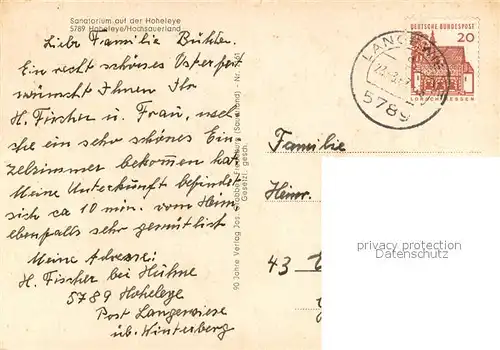 Sanatorium auf der Hoheleye
5789 Hoheleye/Hochsauerland
Liebe Familie
Ein recht schönes Osterfest
wünscht Ihnen Ihr
H. Fischer u. Frau, und
die ein sehr schönes Ein-
zelzimmer bekommen hat.
Meine Unterkunft befindet
sich ca 10 min. vom Heim
ebenfalls sehr gemütlich
Meine Adresse:
H. Fischer bei Hühne
5789 Hoheleye
Post Langewiese
üb. Winterberg
90 Jahre Verlag Jos. Grobbel, Fredeburg (Sauerland) - Nr.
Gesetzl. gesch.
5789
DEUTSCHE BUNDESPOST
20
LORSCH/HESSEN
Familie
Heinr.
43
privacy protection
Datenschutz